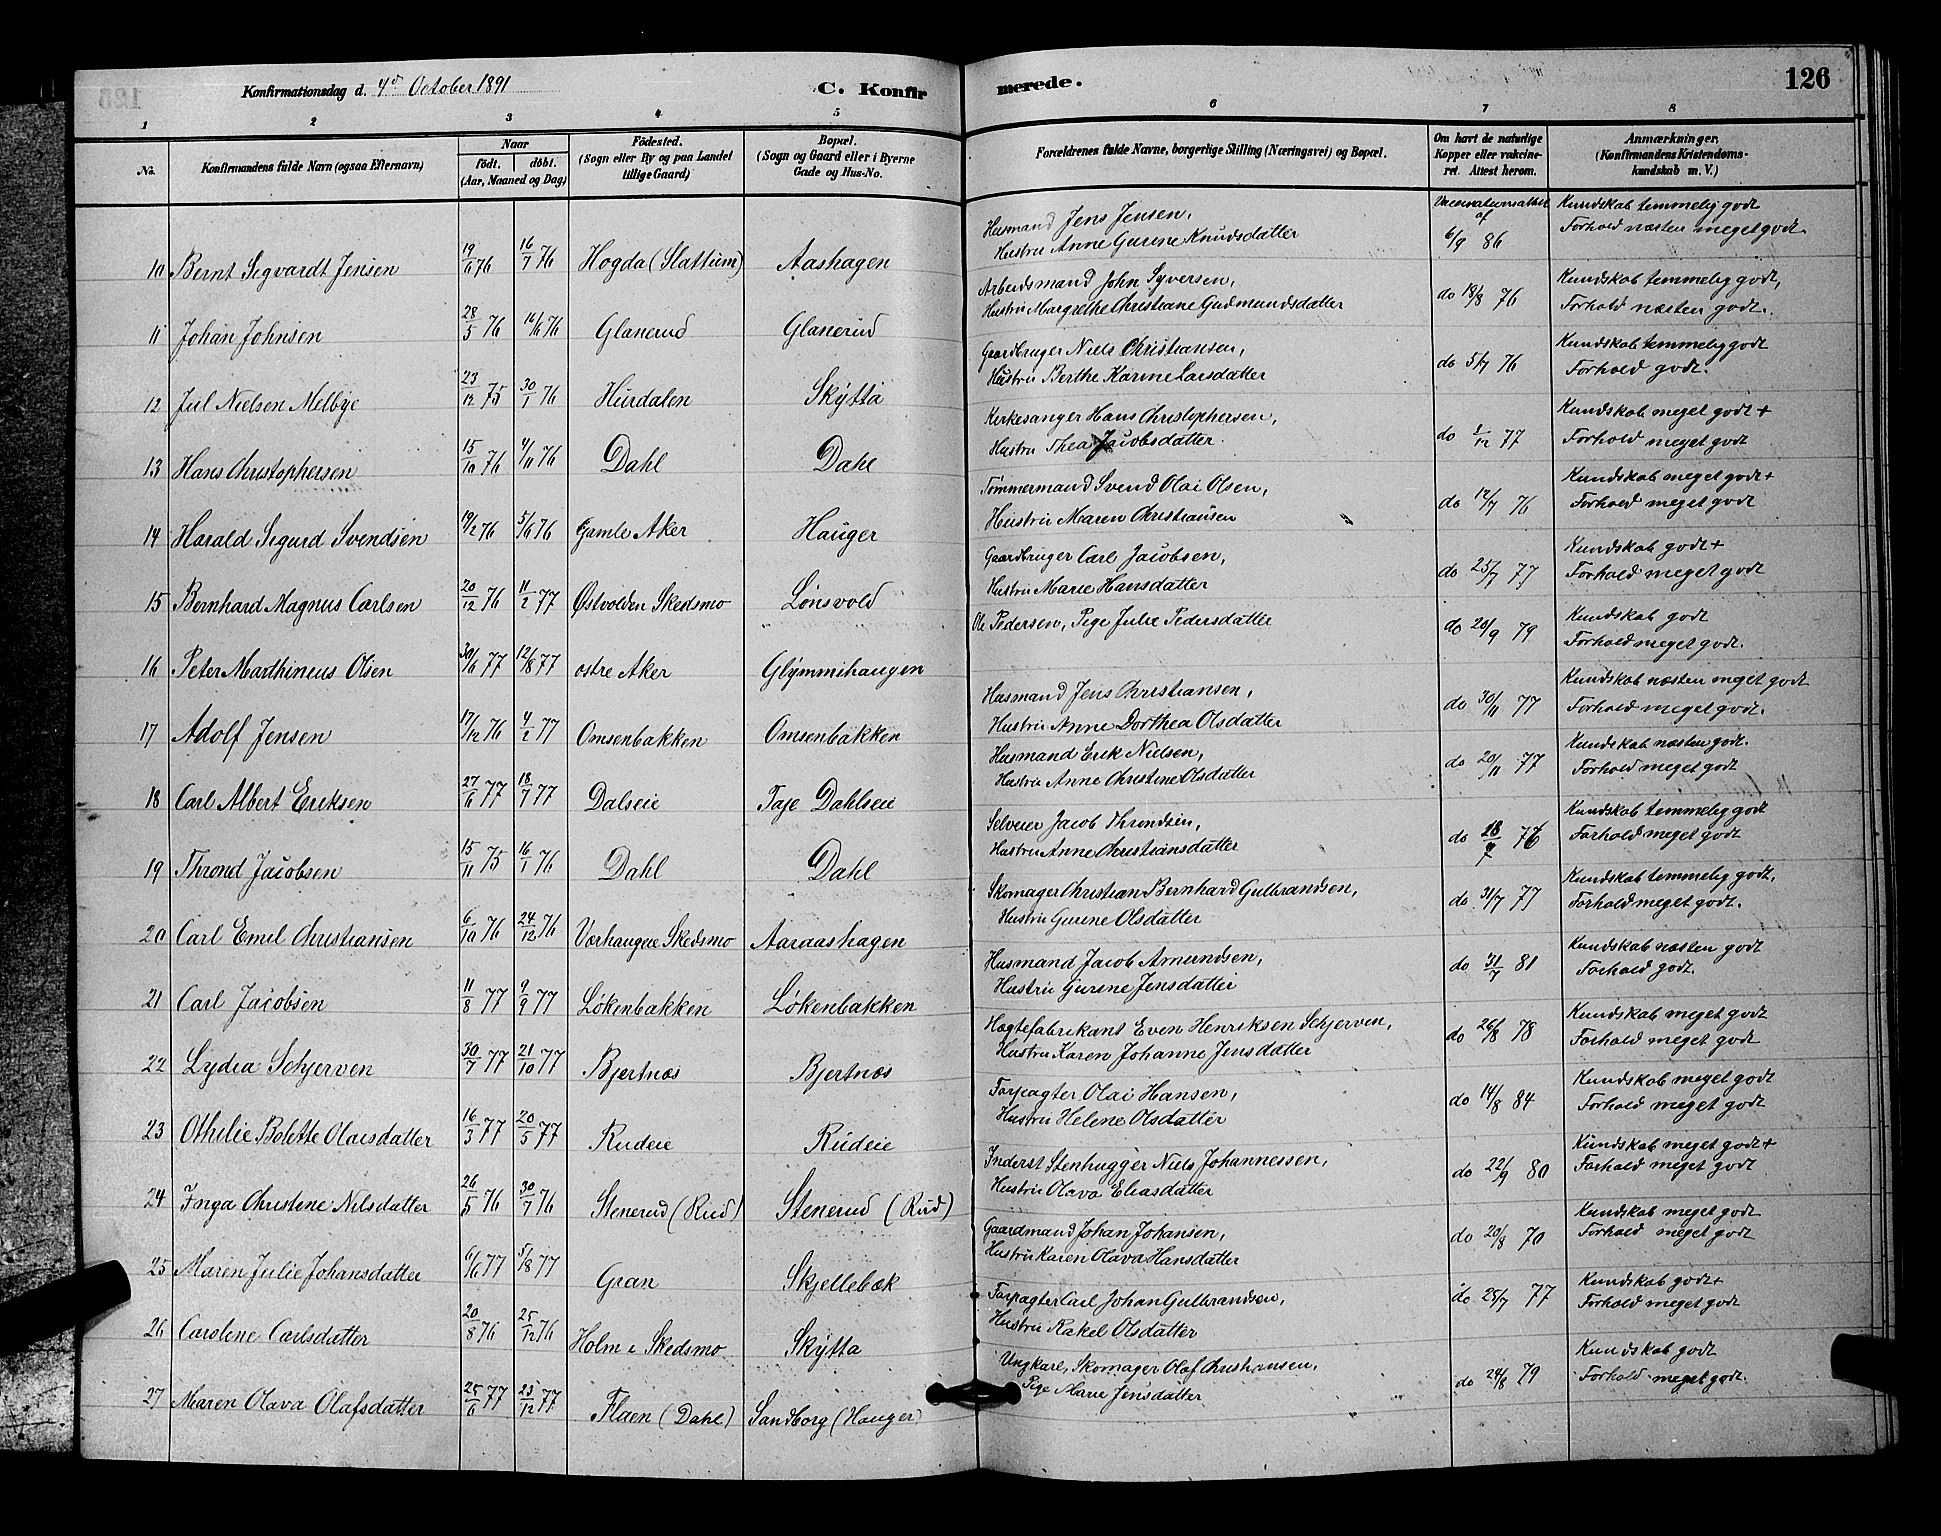 Konfirmationsdag d. 4de October 1891
C. Konfirmerede.
126
1 2 3 4 5 6 7 8
No.
Konfirmandens fulde Navn (ogsaa Efternavn)
Naar
födt. döbt.
(Aar, Maaned og Dag)
Födested.
(Sogn eller By og paa Landet
tillige Gaard)
Bopæl.
(Sogn og Gaard eller i Byerne
Gade og Hus-No.
Forældrenes fulde Navne, borgerlige Stilling (Næringsvei) og Bopæl.
Om havt de naturlige
Kopper eller vakcine-
ret. Attest herom.
Anmærkninger.
(Konfirmandens Kristendoms-
kundskab m. V.)
10 Bernt Sigvardt Jensen 19/6 76 16/7 76 Hogda (Slattum) Aashagen
Husmand Jens Jensen,
Hustru Anne Gurine Knudsdatter
Vaccinationsattest af 6/9 86
Kundskab temmelig godt
Forhold næsten meget godt
11 Johan Johnsen 28/5 76 16/7 76 Glanerud Glanerud
Arbeidsmand John Syversen,
Hustru Margrethe Christiane Gudmundsdatter
do 18/8 76
Kundskab temmelig godt,
Forhold næsten godt.
12 Jul Nielsen Melbye 23/12 75 30/1 76 Hurdalen Skytta
Gaardbruger Niels Christiansen,
Hustru Berthe Karine Larsdatter
do 5/7 76
Kundskab temmelig godt
Forhold godt.
13 Hans Christophersen 15/10 76 4/11 76 Dahl Dahl
Kirkesanger Hans Christophersen,
Hustru Thea Jacobsdatter.
do 1/12 77
Kundskab meget godt +
Forhold meget godt
14 Harald Sigurd Svendsen 19/2 76 5/6 76 Gamle Aker Hauger
Tømmermand Svend Olai Olsen,
Hustru Maren Christiansen
do 12/7 76
Kundskab meget godt +
Forhold meget godt
15 Bernhard Magnus Carlsen 20/12 76 11/2 77 Østvolden Skedsmo Lønsvold
Gaardbruger Carl Jacobsen,
Hustru Marie Hansdatter
do 25/7 77
Kundskab godt +
Forhold meget godt
16 Peter Marthineus Olsen 30/6 77 12/8 77 østre Aker Glymmihaugen
Ole Pedersen, Pige Julie Pedersdatter
do 20/9 79
Kundskab godt
Forhold meget godt.
17 Adolf Jensen 17/12 76 4/2 77 Omsenbakken Omsenbakken
Husmand Jens Christiansen,
Hustru Anne Dorthea Olsdatter
do 30/11 77
Kundskab næsten meget godt
Forhold meget godt.
18 Carl Albert Eriksen 27/6 77 18/7 77 Dalseie Taje Dahlseie
Husmand Erik Nielsen,
Hustru Anne Christine Olsdatter
do 20/11 77
Kundskab næsten godt.
Forhold meget godt
19 Thrond Jacobsen 15/11 75 16/1 76 Dahl Dahl
Selveier Jacob Throndsen,
Hustru Anne Christiansdatter
do 18/7 76
Kundskab temmelig godt
Forhold meget godt
20 Carl Emil Christiansen 6/10 76 24/12 76 Værhaugeie Skedsmo Aaraashagen
Skomager Christian Bernhard Gulbrandsen,
Hustru Gurine Olsdatter
do 31/7 77
Kundskab temmelig godt.
Forhold meget godt.
21 Carl Jacobsen 11/8 77 9/9 77 Løkenbakken Løkenbakken
Husmand Jacob Amundsen,
Hustru Gurine Jensdatter
do 31/7 81
Kundskab næsten godt
Forhold godt.
22 Lydia Schjerven 30/7 77 21/10 77 Bjertnæs Bjertnæs
Hægtefabrikant Even Henriksen Schjerven,
Hustru Karen Johanne Jensdatter
do 26/8 78
Kundskab meget godt
Forhold meget godt
23 Othilie Bolette Olaisdatter 16/3 77 20/5 77 Rudeie Rudeie
Forpagter Olai Hansen,
Hustru Helene Olsdatter
do 14/8 84
Kundskab meget godt
Forhold meget godt
24 Inga Christine Nilsdatter 26/5 76 30/7 76 Stenerud (Rud) Stenerud (Rud)
Inderst Stenhugger Niels Johannessen,
Hustru Olava Eliasdatter
do 22/9 80
Kundskab meget godt +
Forhold meget godt
25 Maren Julie Johansdatter 6/6 77 5/8 77 Gran Skjellebæk
Gaardmand Johan Johansen,
Hustru Karen Olava Hansdatter
do 20/8 70
Kundskab meget godt
Forhold meget godt
26 Caroline Carlsdatter 20/8 76 25/12 76 Holm i Skedsmo Skytta
Forpagter Carl Johan Gulbrandsen,
Hustru Rakel Olsdatter
do 25/7 77
Kundskab godt +
Forhold meget godt
27 Maren Olava Olafsdatter 25/6 77 23/12 77 Flaen (Dahl) Sandborg (Hauger)
Ungkarl, Skomager Olaf Christiansen,
Pige Marie Jensdatter
do 24/8 79
Kundskab godt
Forhold meget godt.